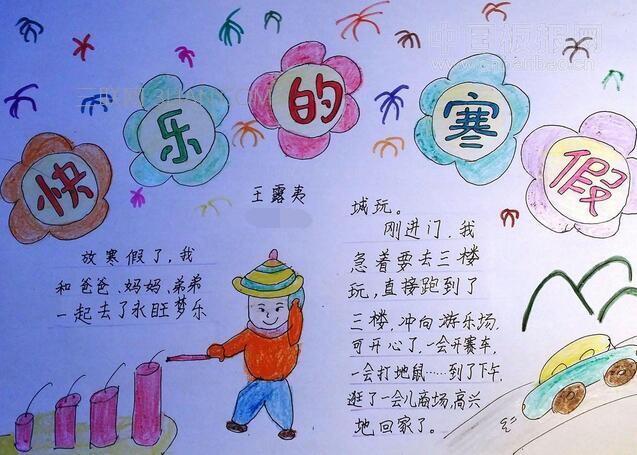 快乐的寒假
王露夷
放寒假了，我
和爸爸、妈妈、弟弟
一起去了永旺梦乐
城玩。
刚进门，我
急着要去三楼
玩，直接跑到了
三楼，冲向游乐场，
可开心了，一会开赛车，
一会打地鼠……到了下午，
逛了一会儿商场，高兴
地回家了。
中国板报网
三联网 3HAN.COM